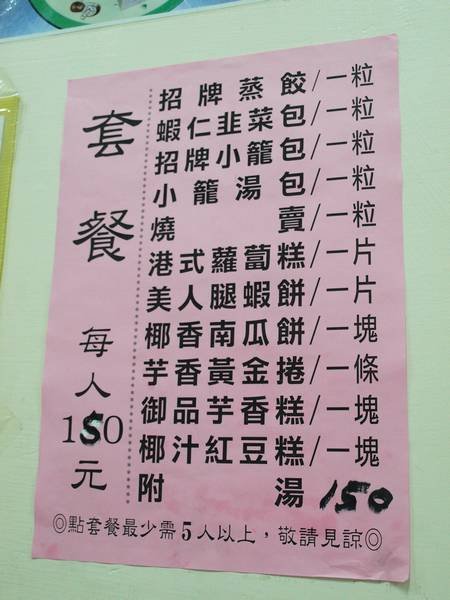 套餐
每人
150
元
招牌蒸餃/一粒
蝦仁韭菜包/一粒
招牌小籠包/一粒
小籠湯包/一粒
燒賣/一粒
港式蘿蔔糕/一片
美人腿蝦餅/一片
椰香南瓜餅/一塊
芋香黃金捲/一條
御品芋香糕/一塊
椰汁紅豆糕/一塊
附湯 150
◎點套餐最少需5人以上，敬請見諒◎